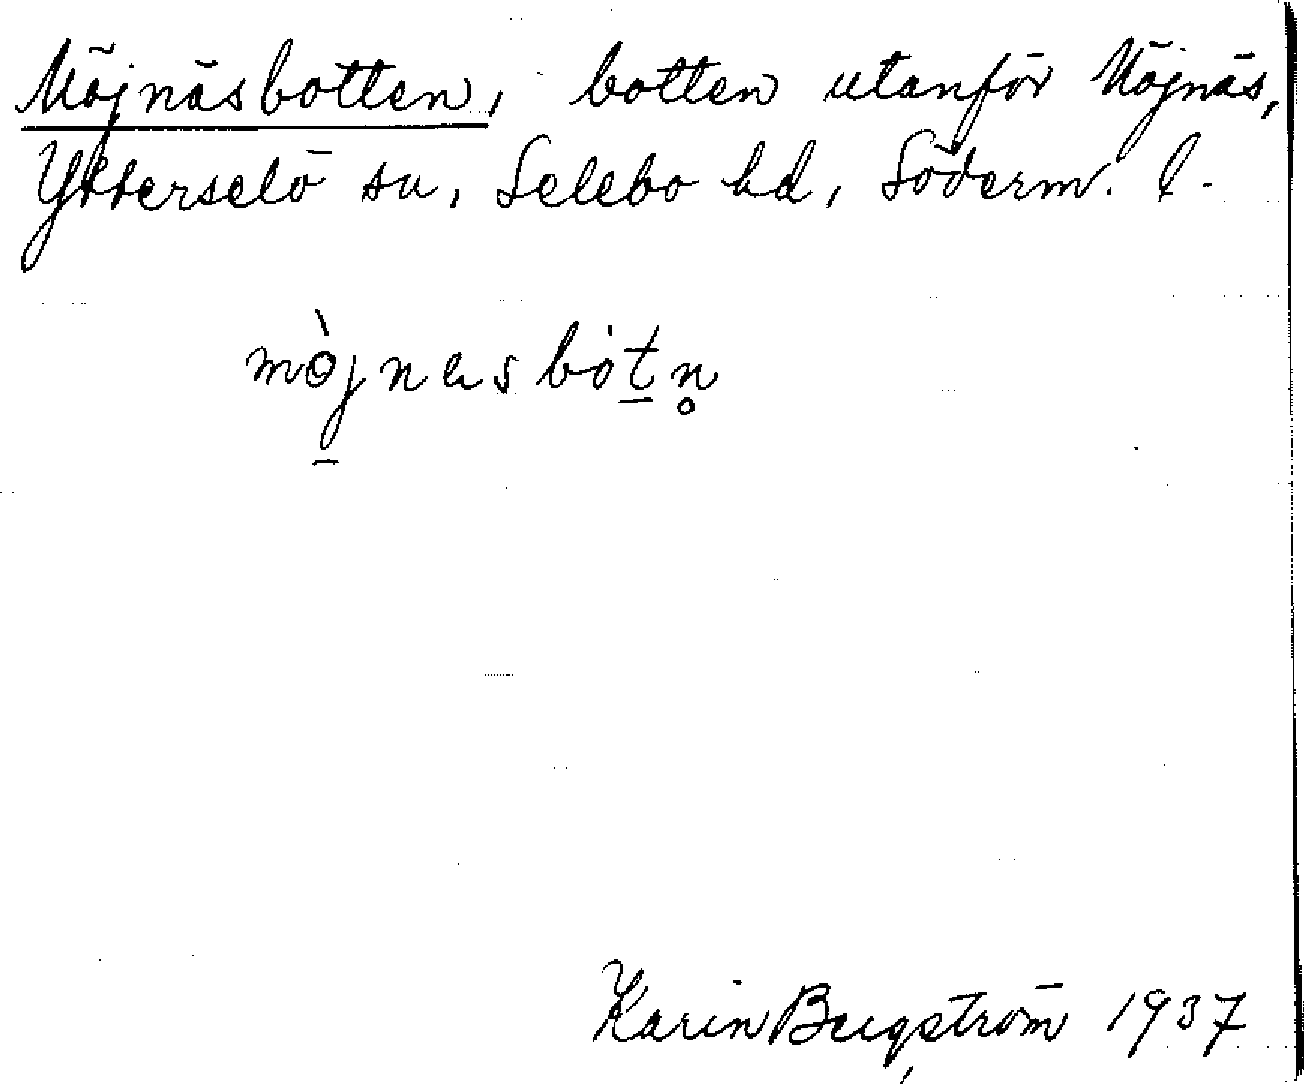 Möjnäsbotten, botten utanför Möjnäs,
Ytterselö sn, Selebo hd, Söderm. l.
mòjnäsbòt̲n̥
Karin Bergström 1937